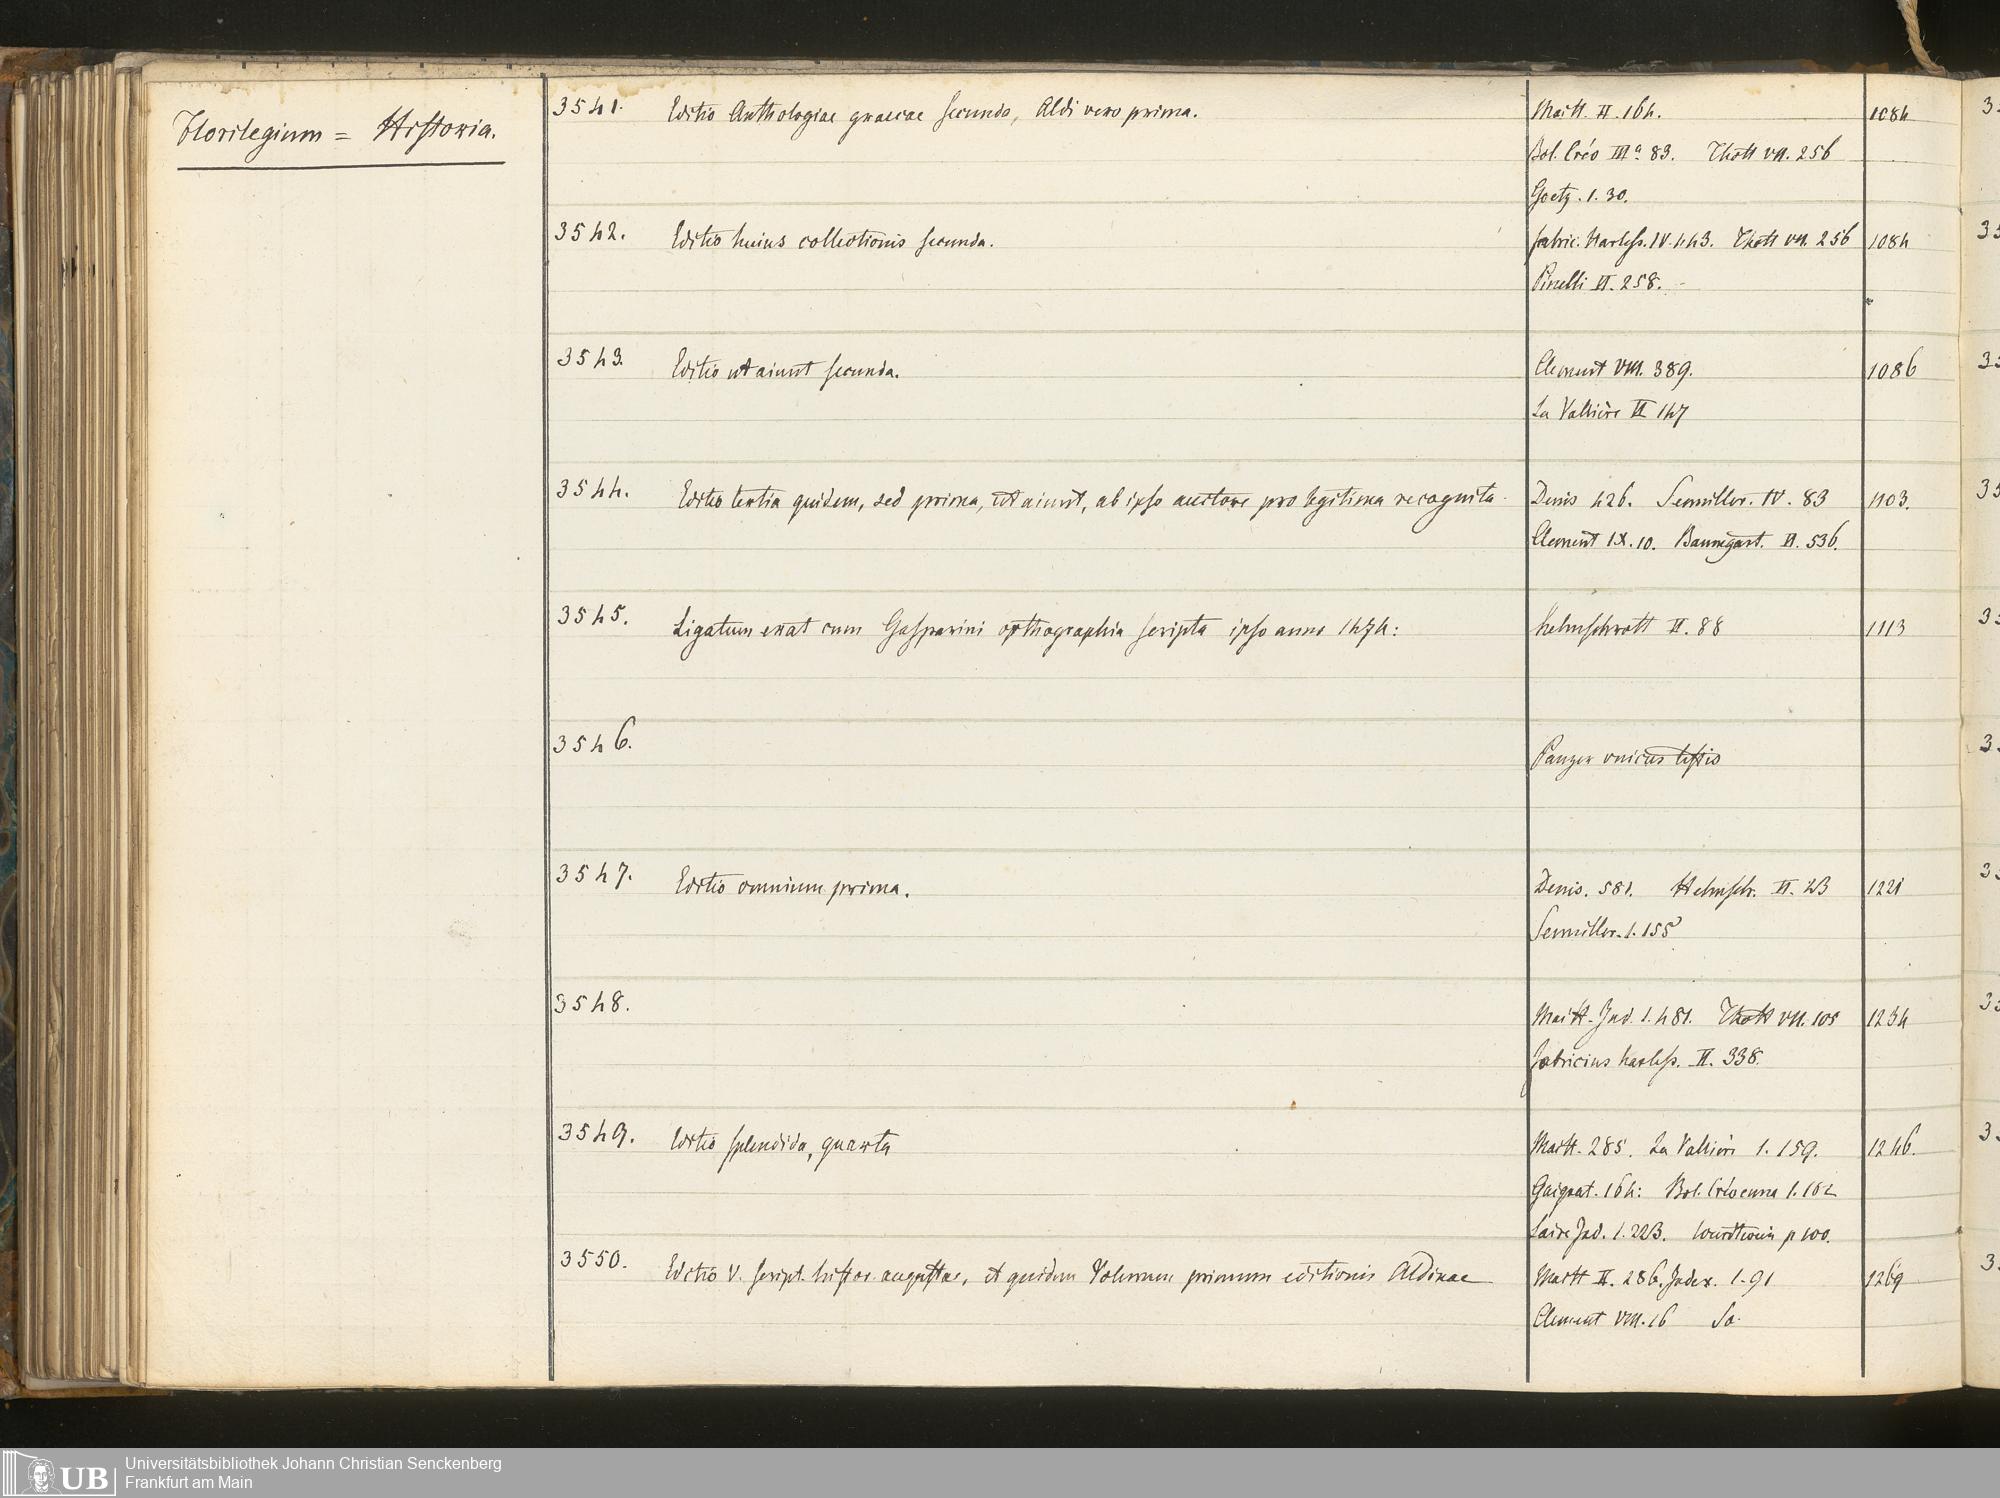 Florilegium = Historia.
3541. Editio Anthologiae graecae secunda, Aldi vero prima. Maitt. II. 164. 1084
Bol. Crév III a. 83. Thott VII. 256
Goetz. 1. 30.
3542. Editio huius collectionis secunda. Fabric. Harless. IV. 443. Thott VII. 256 1084
Pinelli II. 258.
3543. Editio ut aiunt secunda. Clement VIII. 389. 1086
La Vallière II 147
3544. Editio tertia quidem, sed prima, ut aiunt, ab ipso auctore pro legitima recognita. Denis 426. Semiller. IV. 83 1103.
Clement IX. 10. Baumgart. II. 536.
3545. Ligatum erat cum Gasparini orthographia scripta ipso anno 1474: Helmschrott II. 88 1113
3546. Panzer unicus testis
3547. Editio omnium prima. Denis. 581. Helmschr. II. 23 1221
Semiller. 1. 155
3548. Maitt. Ind. 1. 481. Thott VII. 105 1234
Fabricius Harless. II. 338.
3549. Editio splendida, quarta Maitt. 285. La Vallièr 1. 159. 1246.
Gaignat. 164: Bol. Crévenna 1. 182
Laire Ind. 1. 223. Wurdtwein p 100.
3550. Editio V. script. histor. augustae, et quidem Volumen primum editionis Aldinae Maitt II. 286. Index. 1. 91 1269
Clement VIII. 16
Universitätsbibliothek Johann Christian Senckenberg
UB Frankfurt am Main